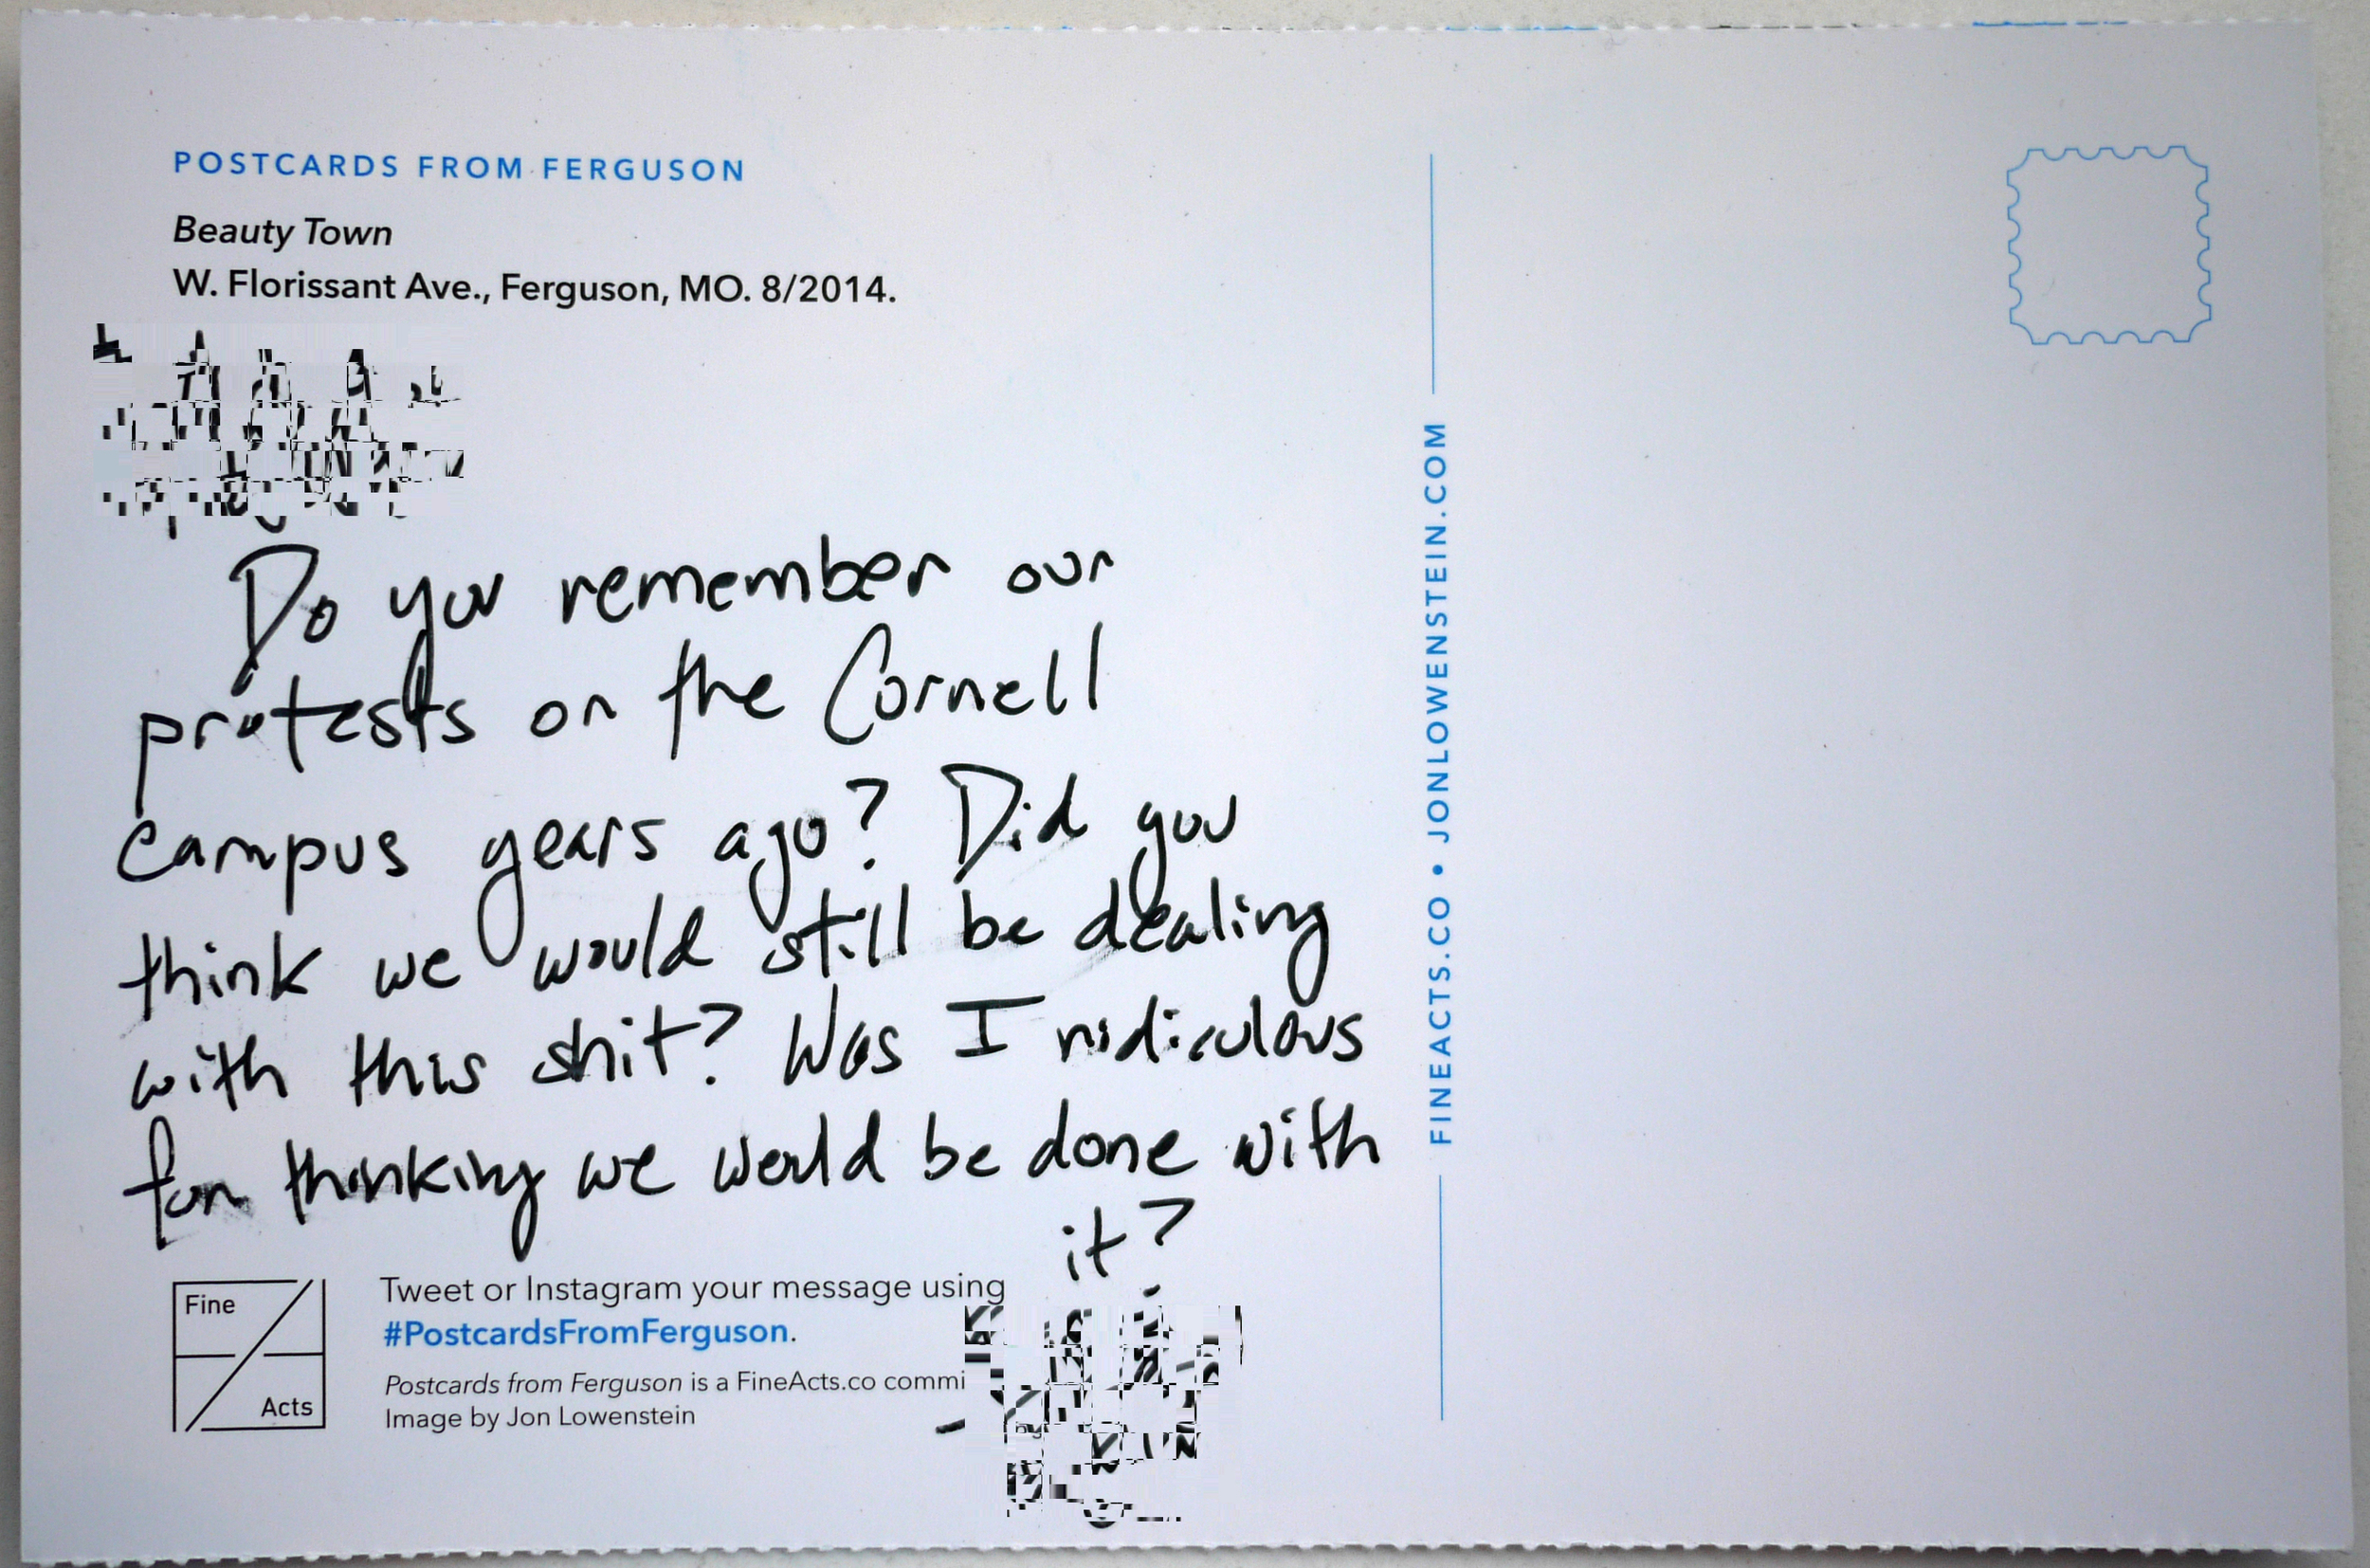 POSTCARDS FROM FERGUSON
Beauty Town
W. Florissant Ave., Ferguson, MO. 8/2014.
Do you remember our
protests on the Cornell
campus years ago? Did you
think we would still be dealing
with this shit? Was I ridiculous
for thinking we would be done with
it?
Fine
Acts
Tweet or Instagram your message using
#PostcardsFromFerguson.
Postcards from Ferguson is a FineActs.co commi
Image by Jon Lowenstein
FINEACTS.CO • JONLOWENSTEIN.COM